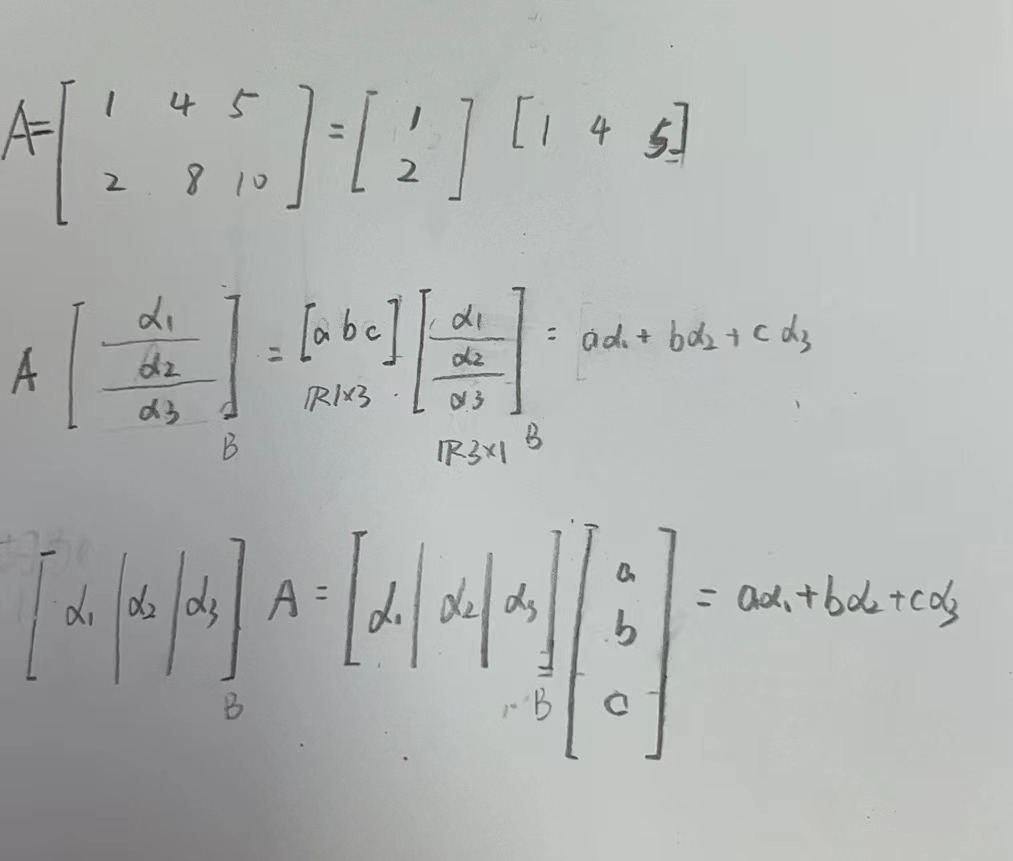 A = [ 1 4 5 ; 2 8 10 ] = [ 1 ; 2 ] [ 1 4 5 ]
A [ α1 / α2 / α3 ]B = [ a b c ] [ α1 / α2 / α3 ]B = aα1 + bα2 + cα3
ℝ1×3 ℝ3×1
[ α1 | α2 | α3 ]B A = [ α1 | α2 | α3 ]B [ a ; b ; c ] = aα1 + bα2 + cα3